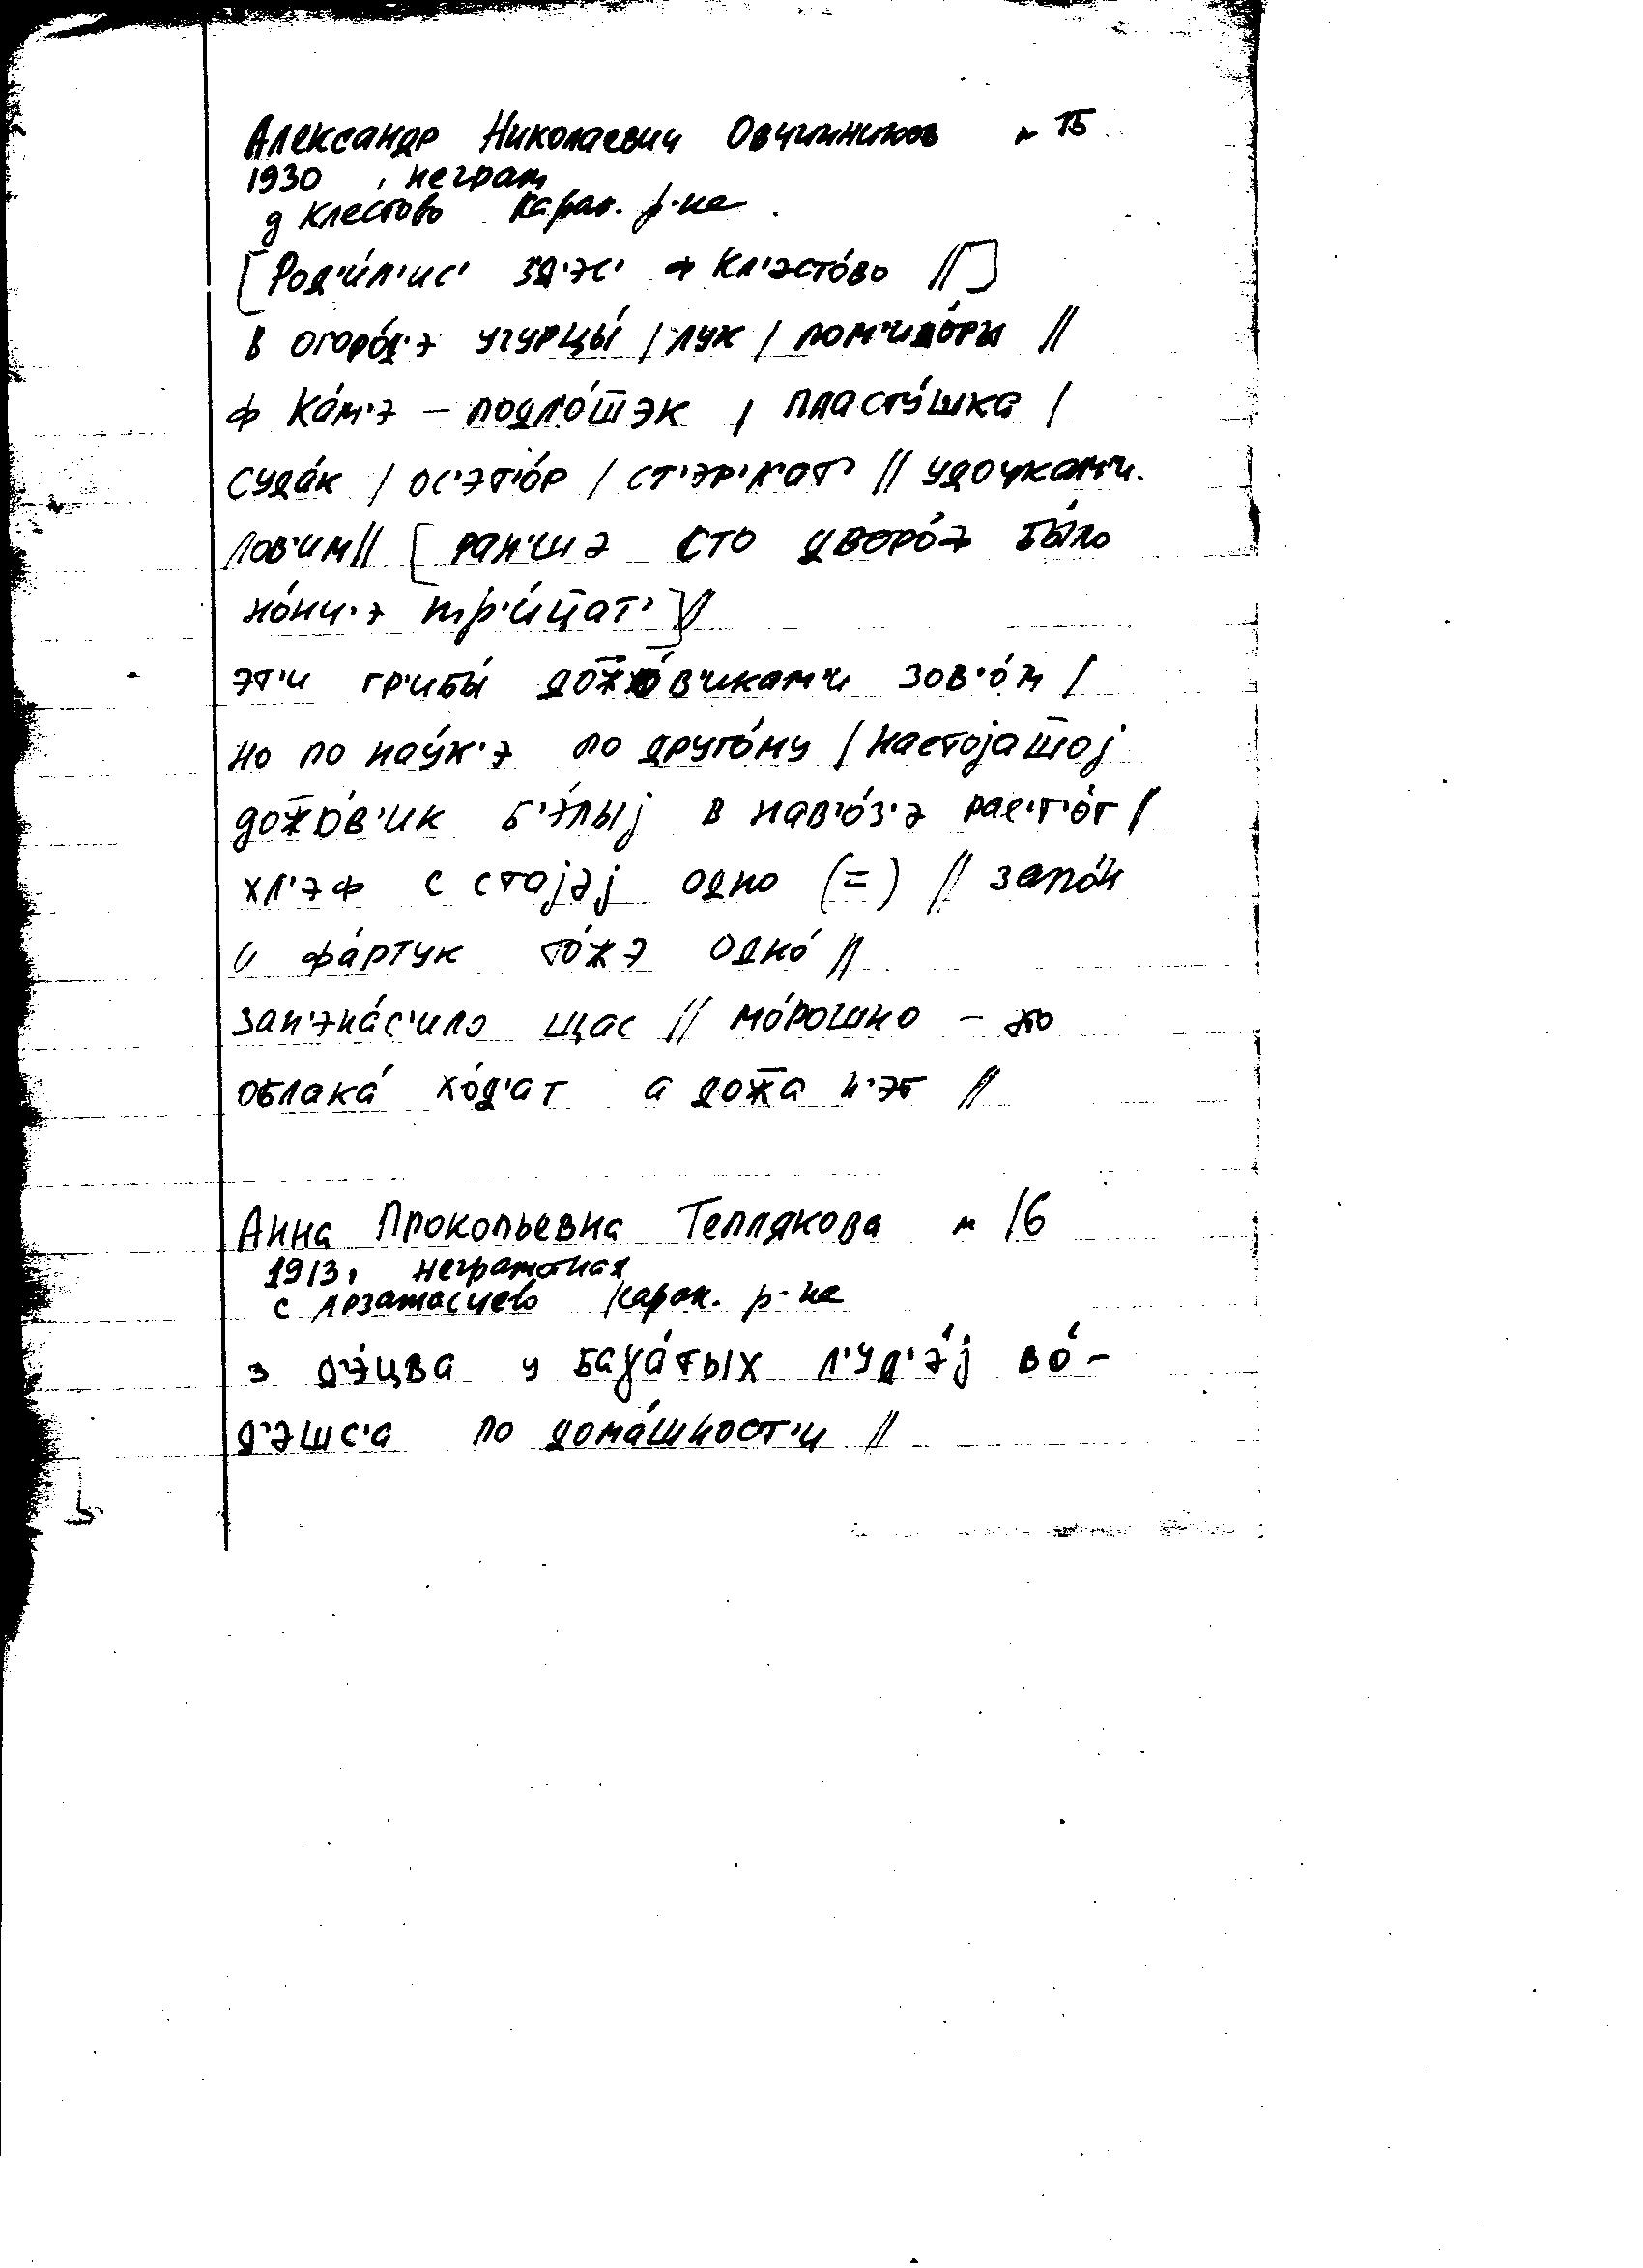 Александр Николаевич Овчинников м 15
1930 , неграм
д Клестово Карак. р-на
[Род'и́л'ис' зд'эс' ф Кл'эсто́во //]
в огоро́д'э угурцы́ / лук / пом'идо́ры //
ф ка́м'э – подло́ш̅эк / пласту́шка /
суда́к / ос'эт'о́р / ст'эр'л'ат' // удочкам'и.
лов'им // [ран'шэ сто дворо́ф бы́ло
но́нч'э тр'и́ц̅ат' ] //
эт'и гр'ибы́ дож̅о́в'икам'и зов'о́м /
но по нау́к'э по друго́му / настоjаш̅оj
дож̅о́в'ик б'э́лыj в нав'о́з'э раст'о́т /
хл'эф с стаjэj одно (=) // запо́н
и фа́ртук то́жэ одно́ //
зан'эна́с'ило щас // мо́рошно – это
облака́ хо́д'ат а дож̅а н'эт //
Анна Прокопьевна Теплякова м 16
1913, неграмотная
с Арзамасцево Карак. р-на
з д'э́цва у баγа́тых л'уд'э́j во́-
д'эшс'а по дома́шност'и //